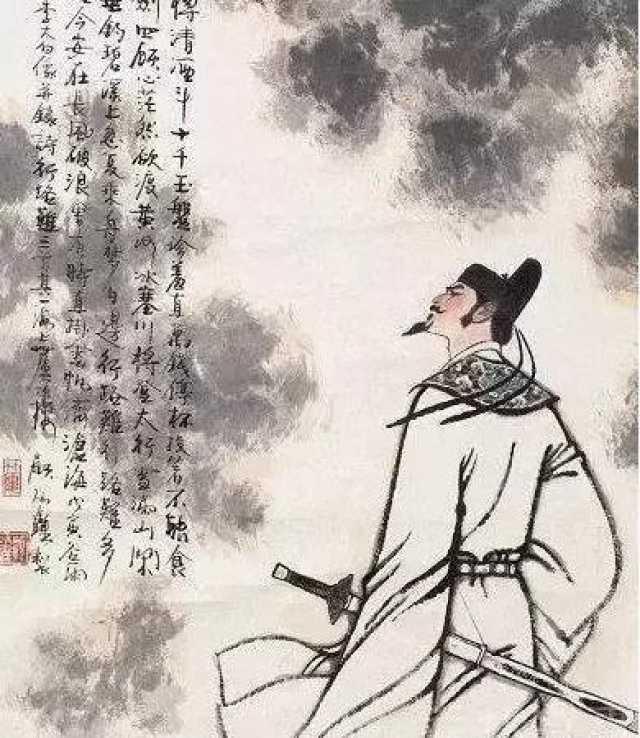 樽清酒斗十千玉盤珍羞直萬錢停杯投箸不能食
劍四顧心茫然欲渡黃河冰塞川將登太行雪滿山閒
垂釣碧溪上忽復乘舟夢日邊行路難行路難多
今安在長風破浪會有時直掛雲帆濟滄海
李太白像并錄詩行路難三首其一海上顧炳鑫製